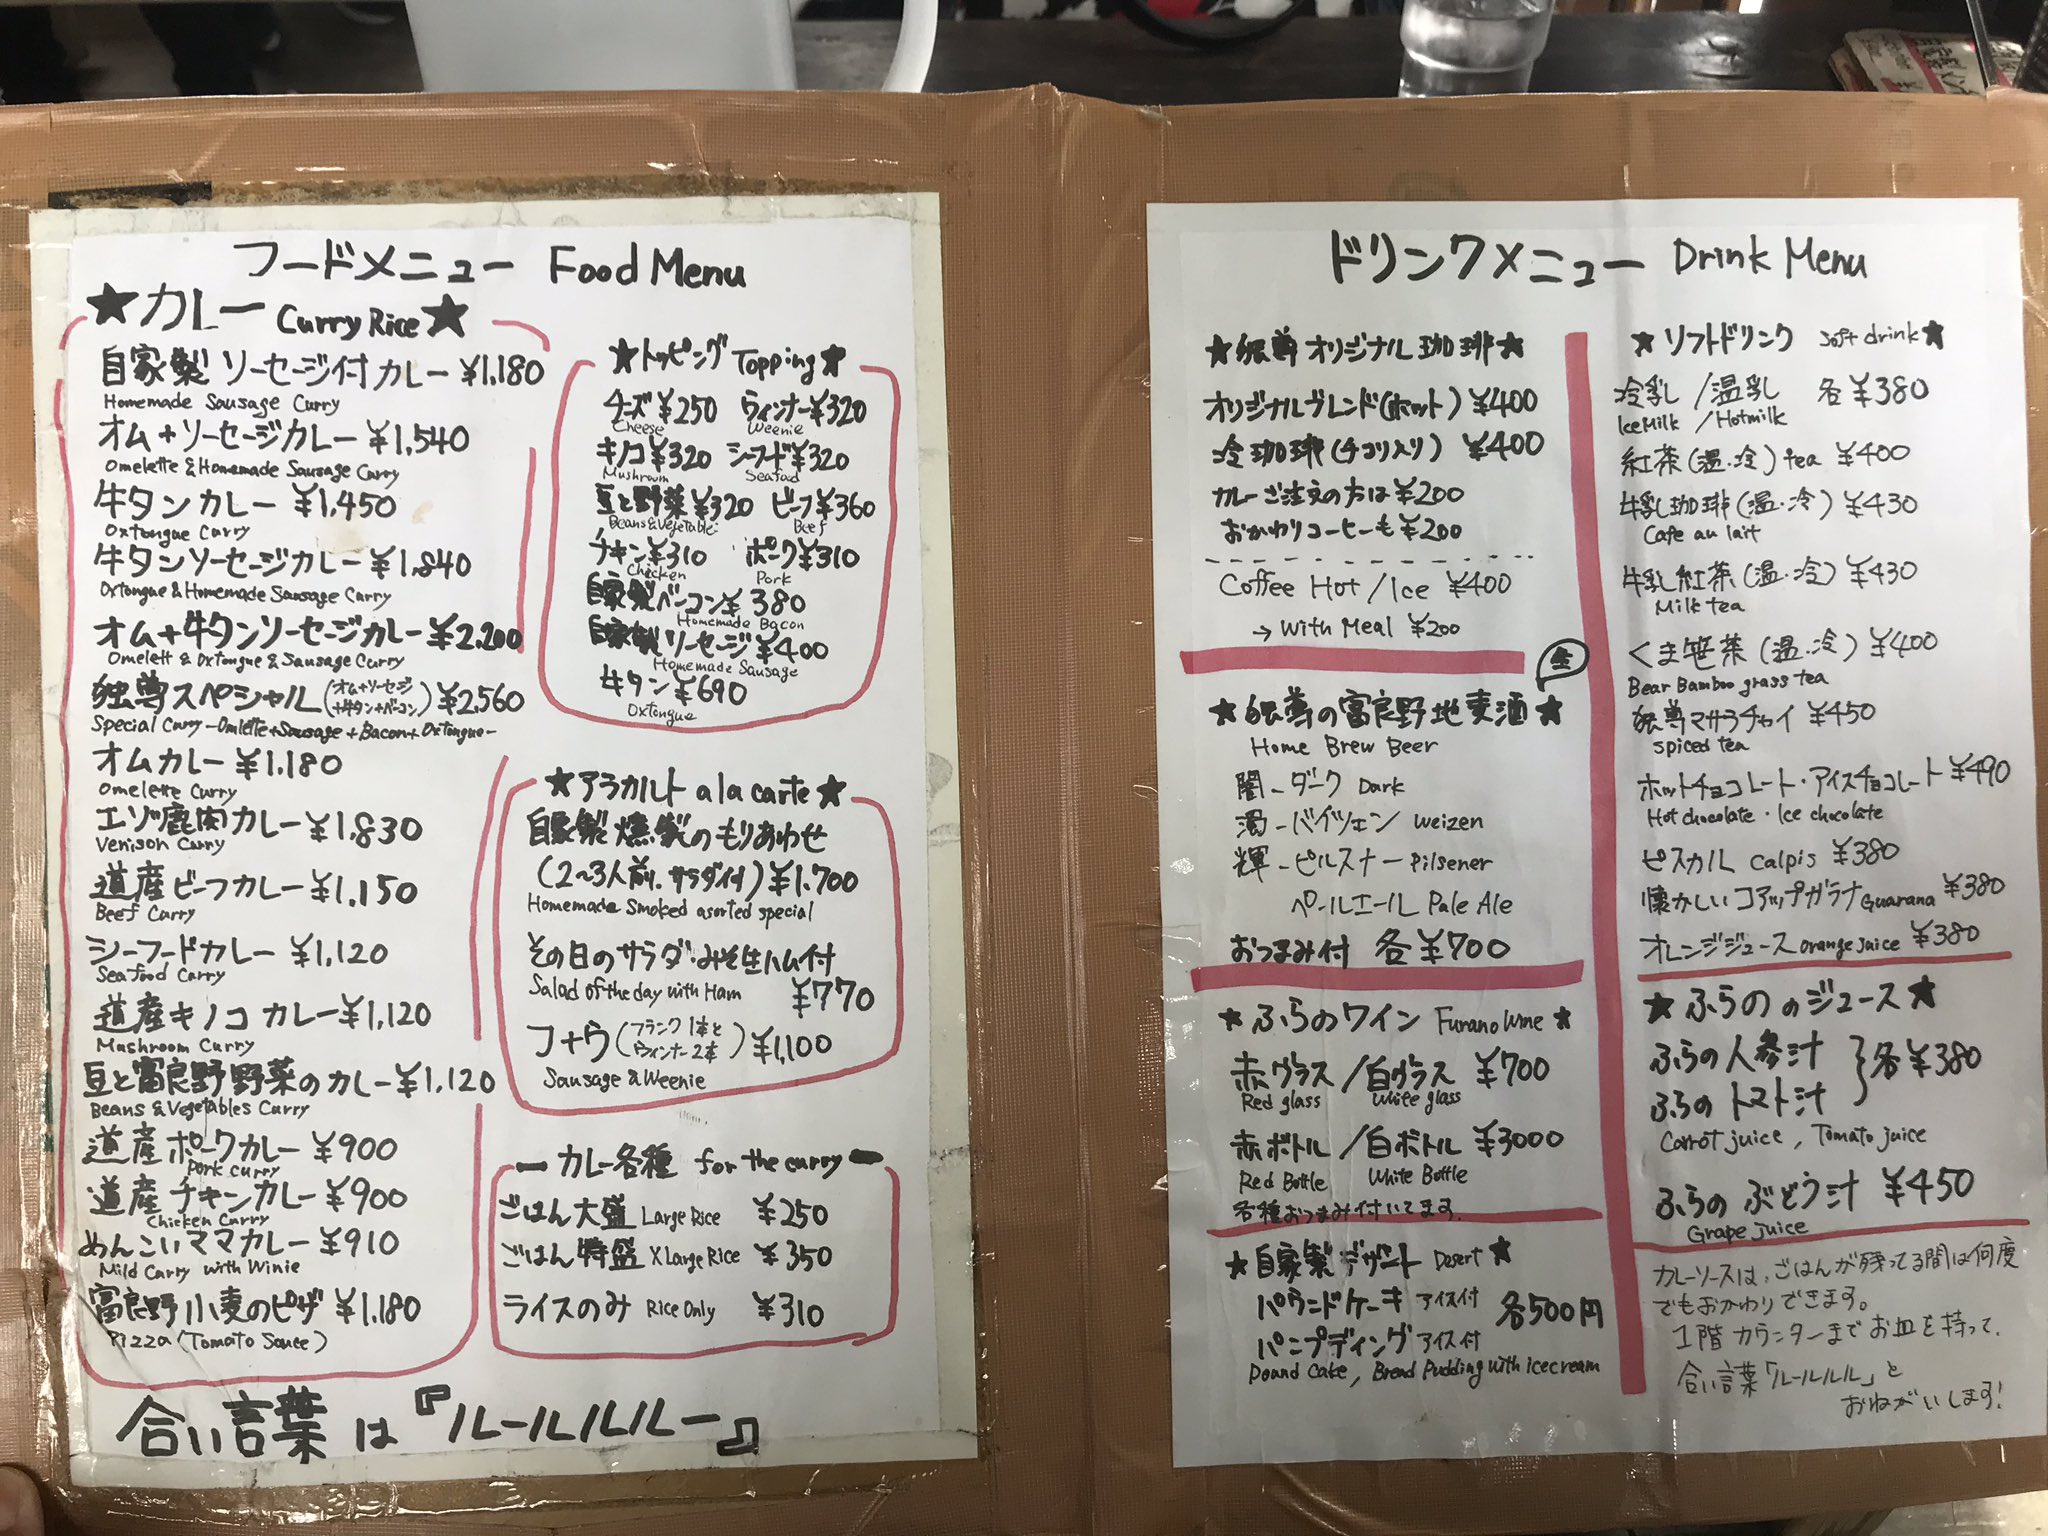 フードメニュー Food Menu
★カレー Curry Rice★
自家製 ソーセージ付カレー ¥1,180
Homemade Sausage Curry
オム+ソーセージカレー ¥1,540
Omelette & Homemade Sausage Curry
牛タン カレー ¥1,450
Oxtongue Curry
牛タンソーセージカレー ¥1,840
Oxtongue & Homemade Sausage Curry
オム+牛タンソーセージカレー ¥2,200
Omelett & Oxtongue & Sausage Curry
独尊スペシャル(オム+ソーセージ+牛タン+ベーコン) ¥2,560
Special Curry -Omlette+Sausage+Bacon+Oxtongue-
オムカレー ¥1,180
Omelette Curry
エゾ鹿肉カレー ¥1,830
Venison Curry
道産ビーフカレー ¥1,150
Beef Curry
シーフードカレー ¥1,120
Seafood Curry
道産キノコカレー ¥1,120
Mushroom Curry
豆と富良野野菜のカレー ¥1,120
Beans & Vegetables Curry
道産ポークカレー ¥900
Pork curry
道産チキンカレー ¥900
Chicken Curry
めんこいママカレー ¥910
Mild Curry with Winie
富良野小麦のピザ ¥1,180
Pizza (Tomato Sauce)
★トッピング Topping★
チーズ ¥250 ウィンナー ¥320
Cheese Weenie
キノコ ¥320 シーフード ¥320
Mushroom Seafood
豆と野菜 ¥320 ビーフ ¥360
Beans & Vegetable Beef
チキン ¥310 ポーク ¥310
Chicken Pork
自家製ベーコン ¥380
Homemade Bacon
自家製ソーセージ ¥400
Homemade Sausage
牛タン ¥690
Oxtongue
★アラカルト a la carte★
自家製燻製のもりあわせ
(2〜3人前、サラダ付) ¥1,700
Homemade Smoked asorted special
その日のサラダ・みそ生ハム付
Salad of the day with Ham ¥770
フ+ウ(フランク1本とウィンナー2本) ¥1,100
Sausage & Weenie
ー カレー各種 for the curry ー
ごはん大盛 Large Rice ¥250
ごはん特盛 X Large Rice ¥350
ライスのみ Rice Only ¥310
合い言葉は『ルールルルー』
ドリンクメニュー Drink Menu
★独尊オリジナル珈琲★
オリジナルブレンド(ホット) ¥400
冷珈琲(チコリ入り) ¥400
カレーご注文の方は ¥200
おかわりコーヒーも ¥200
Coffee Hot / Ice ¥400
→ With Meal ¥200
生
★独尊の富良野地麦酒★
Home Brew Beer
闇-ダーク Dark
濁-バイツェン Weizen
輝-ピルスナー Pilsener
ペールエール Pale Ale
おつまみ付 各¥700
★ふらのワイン Furano Wine★
赤グラス/白グラス ¥700
Red glass White glass
赤ボトル/白ボトル ¥3000
Red Bottle White Bottle
各種おつまみ付いてます。
★自家製デザート Desert★
パウンドケーキ アイス付 各500円
パンプディング アイス付
Pound Cake, Bread Pudding with icecream
★ソフトドリンク Soft drink★
冷乳/温乳 各¥380
Ice Milk / Hotmilk
紅茶(温・冷) tea ¥400
牛乳珈琲(温・冷) ¥430
Cafe au lait
牛乳紅茶(温・冷) ¥430
Milk tea
くま笹茶(温・冷) ¥400
Bear Bamboo grass tea
独尊マサラチャイ ¥450
Spiced tea
ホットチョコレート・アイスチョコレート ¥490
Hot chocolate・Ice chocolate
ピスカル calpis ¥380
懐かしいコアップガラナ Guarana ¥380
オレンジジュース orange juice ¥380
★ふらののジュース★
ふらの人参汁
ふらのトマト汁 } 各¥380
Carrot juice, Tomato juice
ふらのぶどう汁 ¥450
Grape juice
カレーソースは、ごはんが残ってる間は何度
でもおかわりできます。
1階カウンターまでお皿を持って、
合い言葉「ルールルル」と
おねがいします!